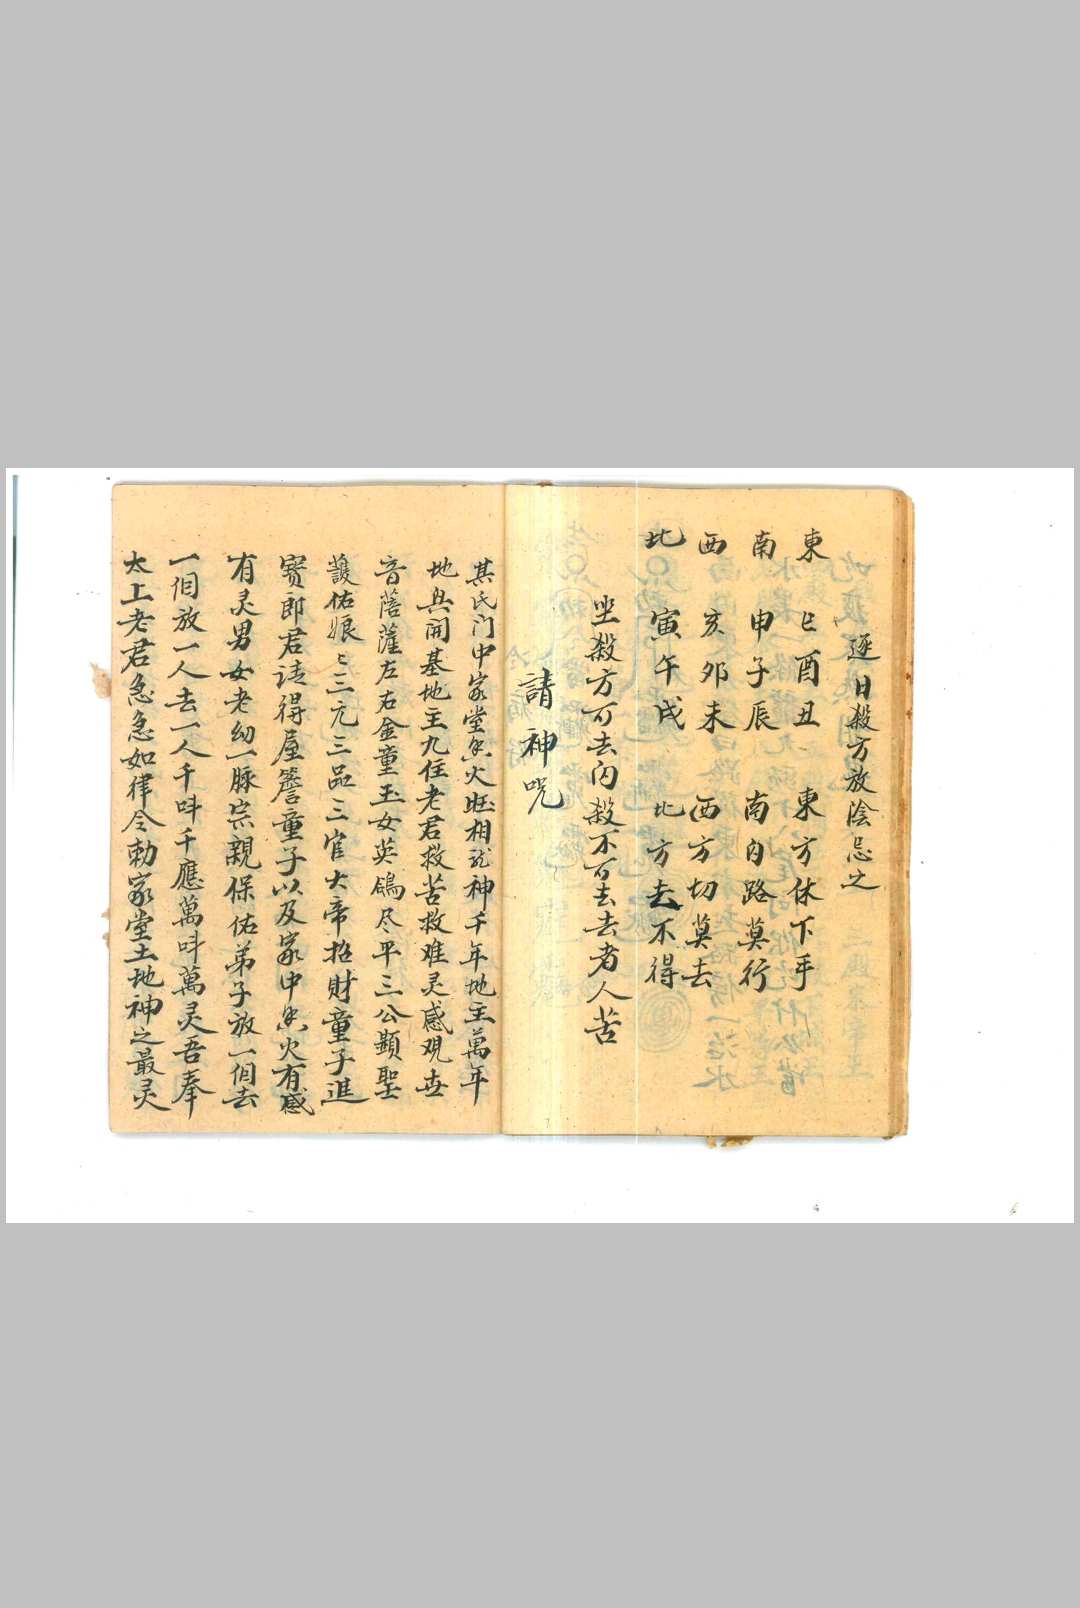 逐日殺方放陰忌之
東 巳酉丑 東方休下手
南 申子辰 南內路莫行
西 亥卯未 西方切莫去
北 寅午戌 北方去不得
坐殺方可去內殺不可去去者人苦
請神咒
其氏门中家堂香火旺相 神千年地主萬年
地与開基地主九住老君救苦救难灵感观世
音菩薩左右金童玉女英鴿尽平三公顯聖
護佑娘〻三元三品三官大帝招財童子進
寳郎君请得屋簷童子以及家中香火有感
有灵男女老幼一脉宗親保佑弟子放一個去
一個放一人去一人千呌千應萬呌萬灵吾奉
太上老君急急如律令勅家堂土地神之最灵